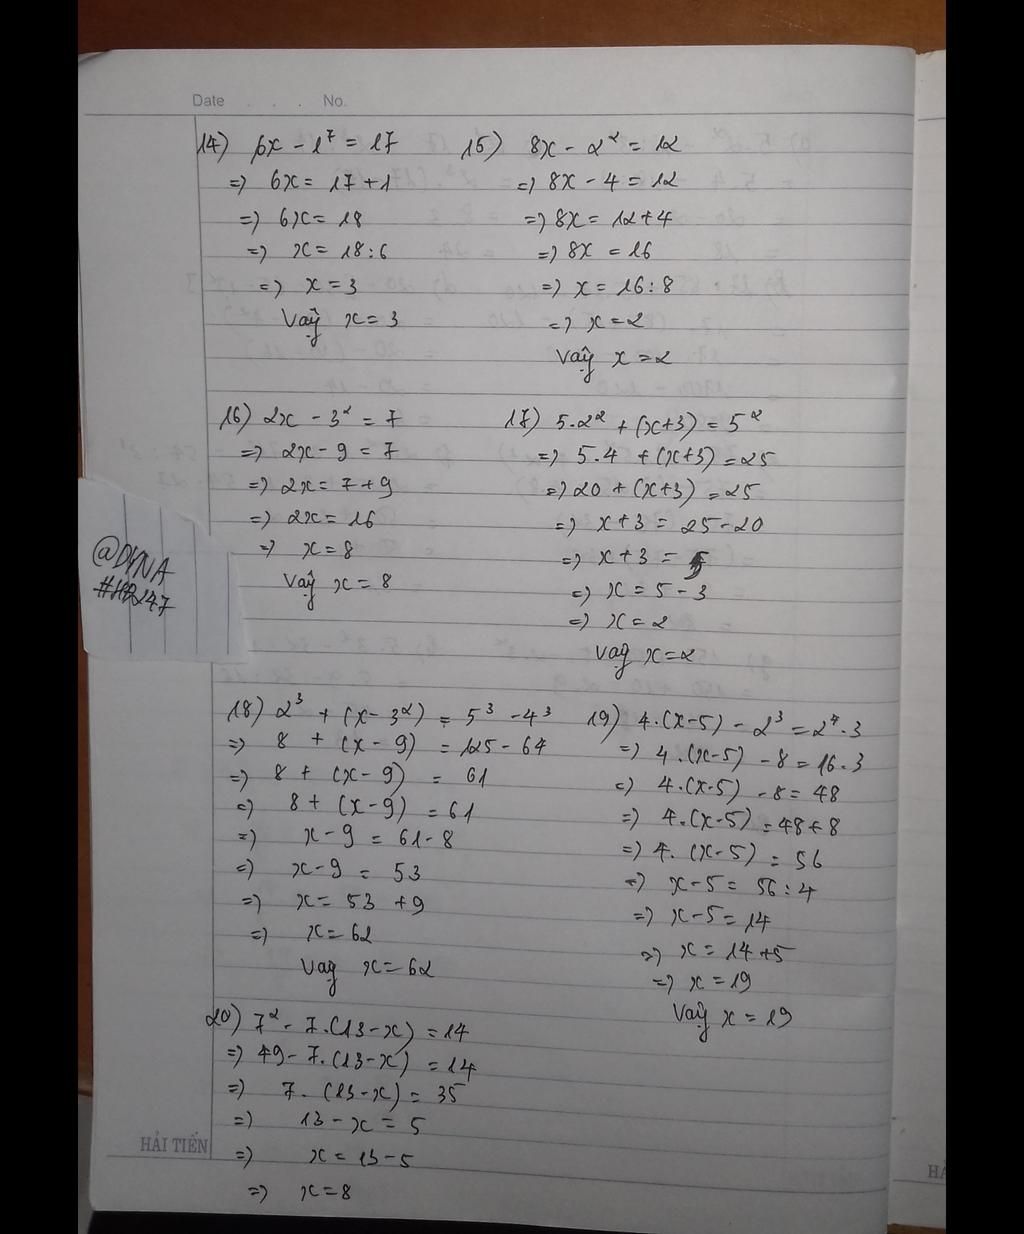 Date . . . No.
14) 6x - 1⁷ = 17
=> 6x = 17 + 1
=> 6x = 18
=> x = 18 : 6
=> x = 3
Vậy x = 3
15) 8x - 2² = 12
=> 8x - 4 = 12
=> 8x = 12 + 4
=> 8x = 16
=> x = 16 : 8
=> x = 2
Vậy x = 2
16) 2x - 3² = 7
=> 2x - 9 = 7
=> 2x = 7 + 9
=> 2x = 16
=> x = 8
Vậy x = 8
17) 5.2² + (x+3) = 5²
=> 5.4 + (x+3) = 25
=> 20 + (x+3) = 25
=> x + 3 = 25 - 20
=> x + 3 = 5
=> x = 5 - 3
=> x = 2
Vậy x = 2
@DYNA
18) 2³ + (x - 3²) = 5³ - 4³
=> 8 + (x - 9) = 125 - 64
=> 8 + (x - 9) = 61
=> 8 + (x - 9) = 61
=> x - 9 = 61 - 8
=> x - 9 = 53
=> x = 53 + 9
=> x = 62
Vậy x = 62
19) 4.(x-5) - 2³ = 2⁴.3
=> 4.(x-5) - 8 = 16.3
=> 4.(x-5) - 8 = 48
=> 4.(x-5) = 48 + 8
=> 4.(x-5) = 56
=> x - 5 = 56 : 4
=> x - 5 = 14
=> x = 14 + 5
=> x = 19
Vậy x = 19
20) 7² - 7.(13-x) = 14
=> 49 - 7.(13-x) = 14
=> 7.(13-x) = 35
=> 13 - x = 5
=> x = 13 - 5
=> x = 8
HẢI TIẾN